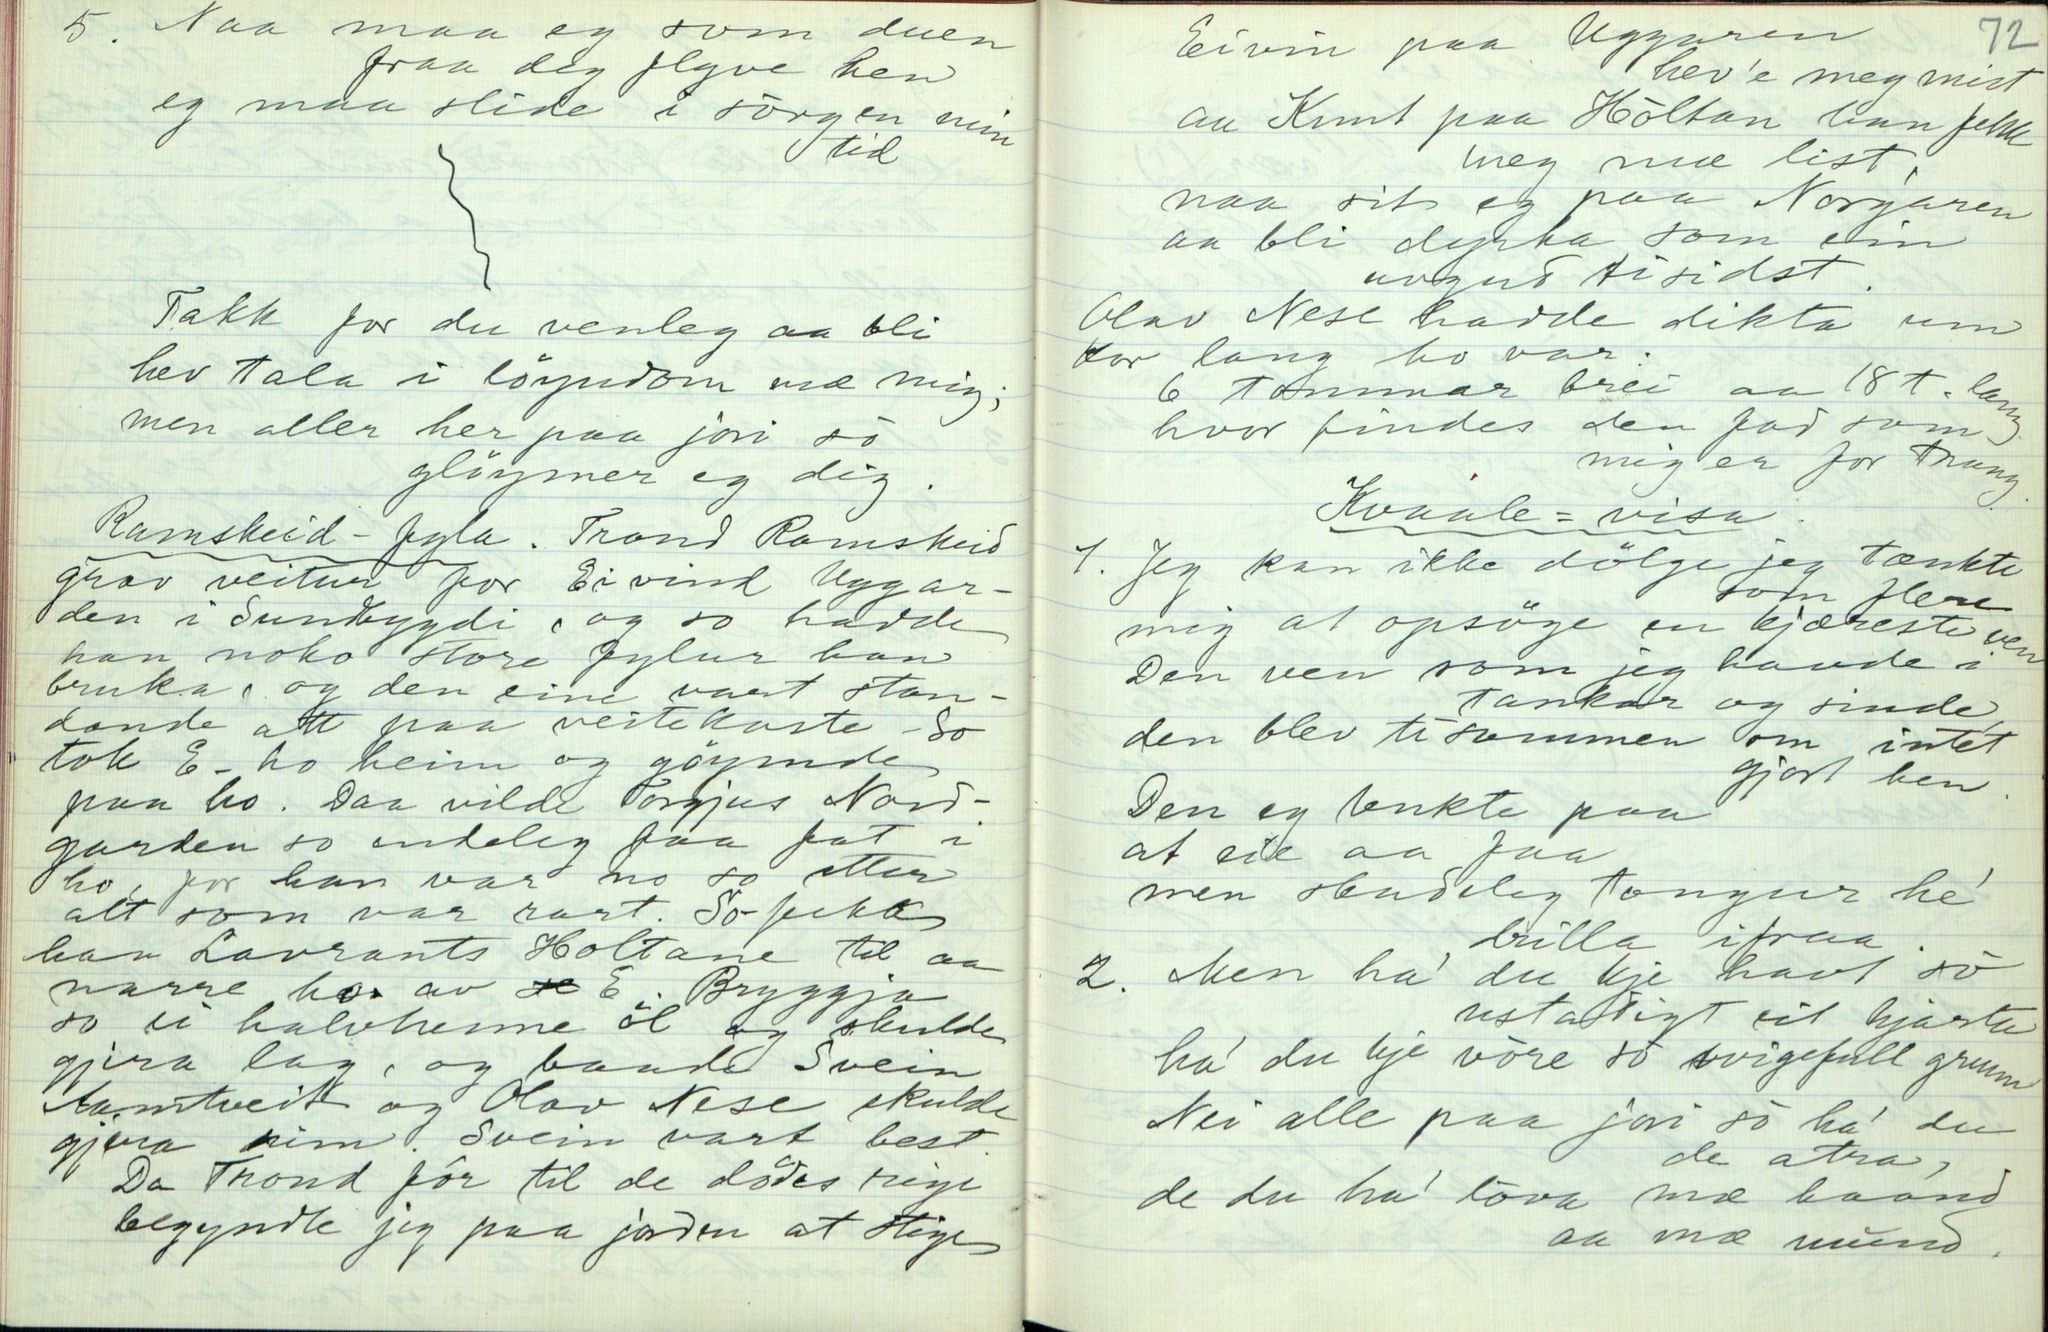 5. Naa maa eg som duen
fraa deg flyve hen
eg maa slide i sörgen min
tid
Takk for du venleg aa bli
hev tala i löyndom mæ mig;
men aller her paa jori so
glöymer eg dig.
Ramskeid-fyla. Trond Ramskeid
grov veitur for Eivind Uggar-
den i Sundbygdi, og so hadde
han noko store fylur han
bruka, og den eine vart stan-
dande att paa veitekaste - So
tok E- ho heim og göymde
paa ho. Daa vilde Torgjus Nord-
garden so endeleg faa fat i
ho, for han var no so etter
alt som var rart. So fekk
han Lavrants Holtane til aa
narre ho av E. Bryggja
so ei halvtunne öl og skulde
gjera lag, og baade Svein
Aamtveit og Olav Nese skulde
gjera rim. Svein vart best.
Da Trond fór til de dödes rige
begyndte jeg paa jorden at stige
72
Eivin paa Uggaren
hev'e meg mist
aa Knut paa Höltan han fekk
meg mæ list,
naa sit eg paa Norgaren
aa bli dyrka som ein
avgud tisidst.
Olav Nese hadde dikta um
kor lang ho var.
6 tommar brei aa 18 t. lang
hvor findes den fod som
mig er for trang.
Kvaale=visa.
1. Jeg kan ikke dölge jeg tænkte
som flere
mig at opsöge en kjæreste ven
Den ven som jeg havde i
tankar og sinde,
den blev tisammen om intet
gjort hen.
Den eg tenkte paa
at eie aa faa
men skadeleg tongur he'
brilla ifraa.
2. Men ha' du kje havt so
ustatigt eit hjarta
ha' du kje vöre so svigefull grunn
Nei alle paa jori so ha' du
de atra,
de du ha' lova mæ haand
aa mæ mund.